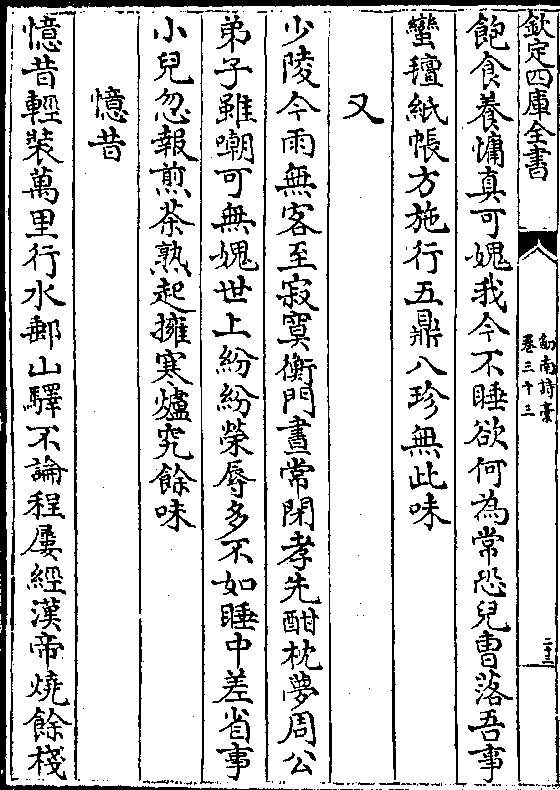 欽定四庫全書
劒南詩稾
卷三十三
二十三
飽食養慵真可媿我今不睡欲何為常恐兒曹落吾事
蠻氊紙帳方施行五鼎八珍無此味
又
少陵今雨無客至寂寞衡門晝常閉孝先酣枕夢周公
弟子雖嘲可無媿世上紛紛榮辱多不如睡中差省事
小兒忽報煎茶熟起擁寒爐究餘味
憶昔
憶昔輕裝萬里行水郵山驛不論程屢經漢帝燒餘棧